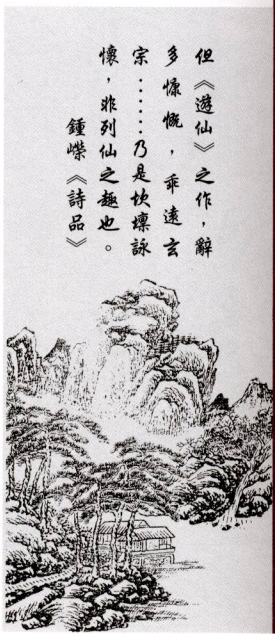 但《遊仙》之作，辭
多慷慨，乖遠玄
宗……乃是坎壈詠
懷，非列仙之趣也。
鍾嶸《詩品》